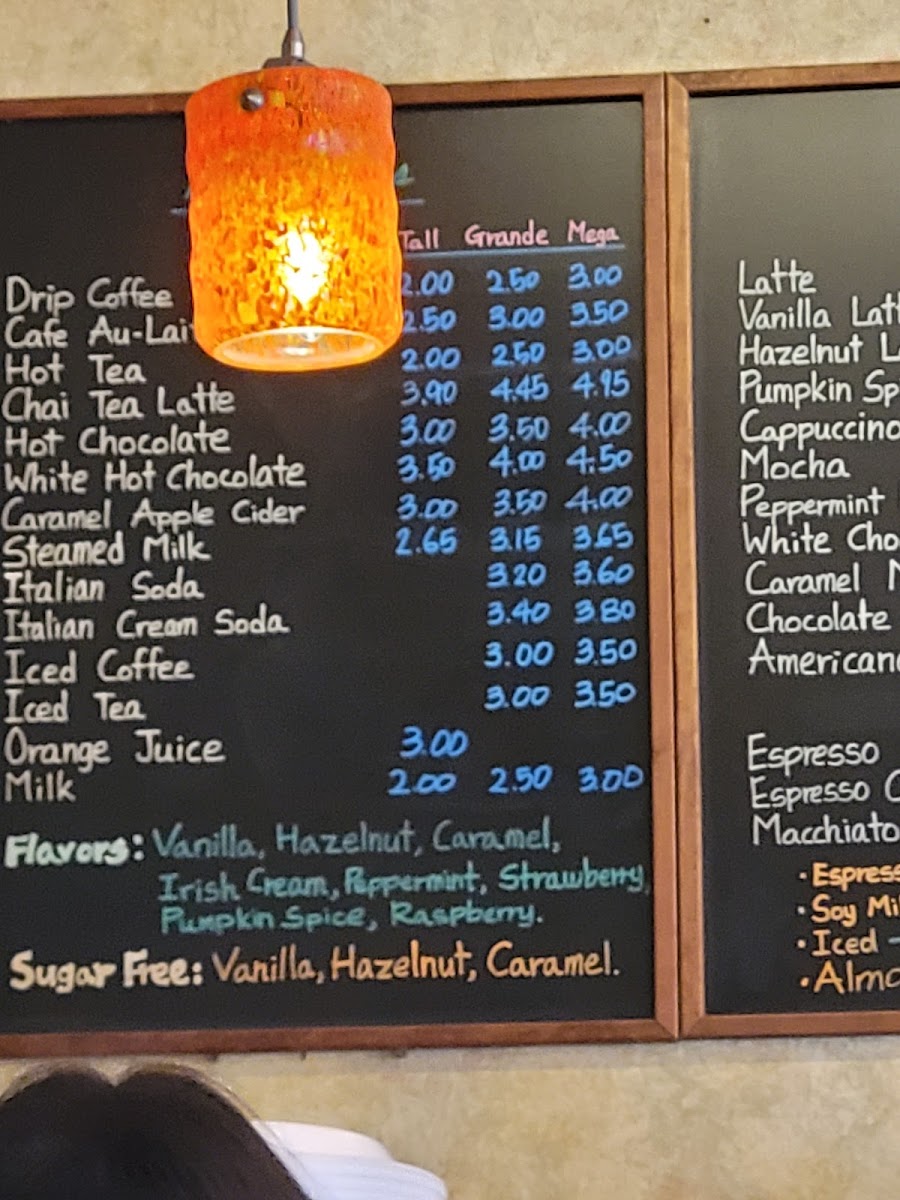 Tall Grande Mega
Drip Coffee 2.00 2.50 3.00
Cafe Au-Lai 2.50 3.00 3.50
Hot Tea 2.00 2.50 3.00
Chai Tea Latte 3.90 4.45 4.95
Hot Chocolate 3.00 3.50 4.00
White Hot Chocolate 3.50 4.00 4.50
Caramel Apple Cider 3.00 3.50 4.00
Steamed Milk 2.65 3.15 3.65
Italian Soda 3.20 3.60
Italian Cream Soda 3.40 3.80
Iced Coffee 3.00 3.50
Iced Tea 3.00 3.50
Orange Juice 3.00
Milk 2.00 2.50 3.00
Flavors: Vanilla, Hazelnut, Caramel,
Irish Cream, Peppermint, Strawberry,
Pumpkin Spice, Raspberry.
Sugar Free: Vanilla, Hazelnut, Caramel.
Latte
Vanilla Latt
Hazelnut L
Pumpkin Sp
Cappuccino
Mocha
Peppermint
White Cho
Caramel M
Chocolate
American
Espresso
Espresso C
Macchiato
· Espress
· Soy Mi
· Iced -
· Almo